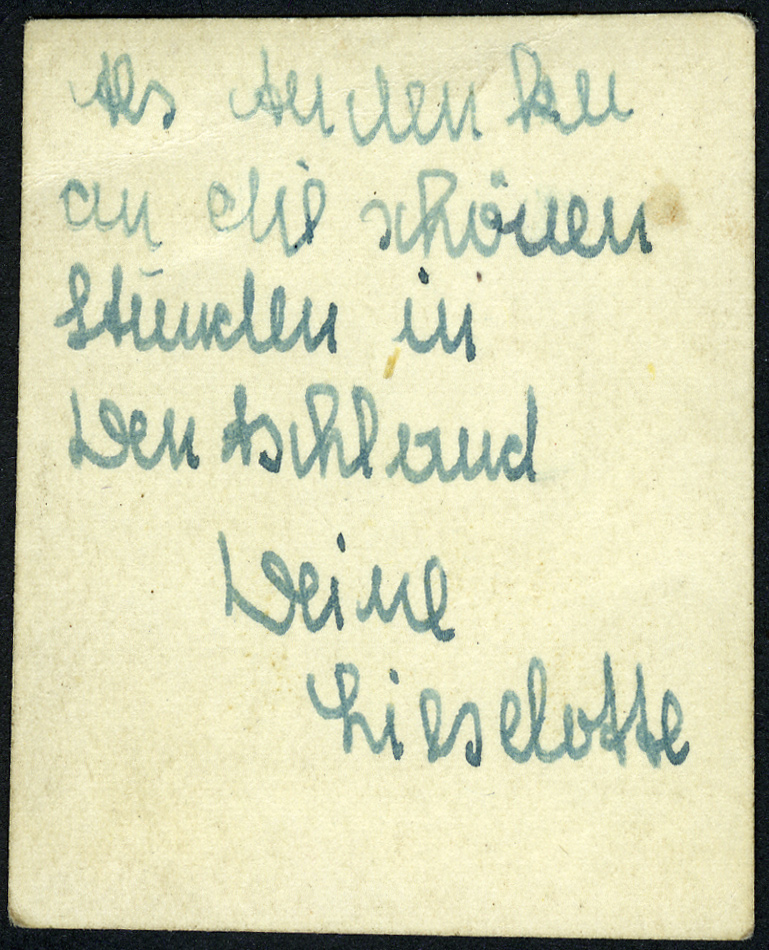 Als Andenken
an die schönen
Stunden in
Deutschland
Deine
Lieselotte